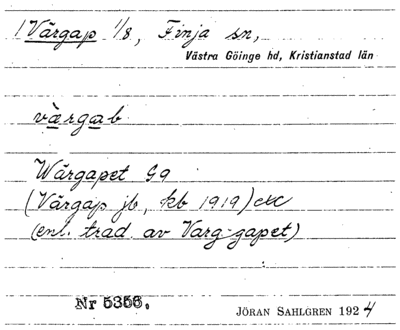 1 Vårgap 1/8, Finja sn,
Västra Göinge hd, Kristianstad län
vàrgab
Wårgapet G9
(Vårgap jb, kb 1919) etc
(enl. trad. av Varg-gapet)
Nr 5356.
JÖRAN SAHLGREN 1924